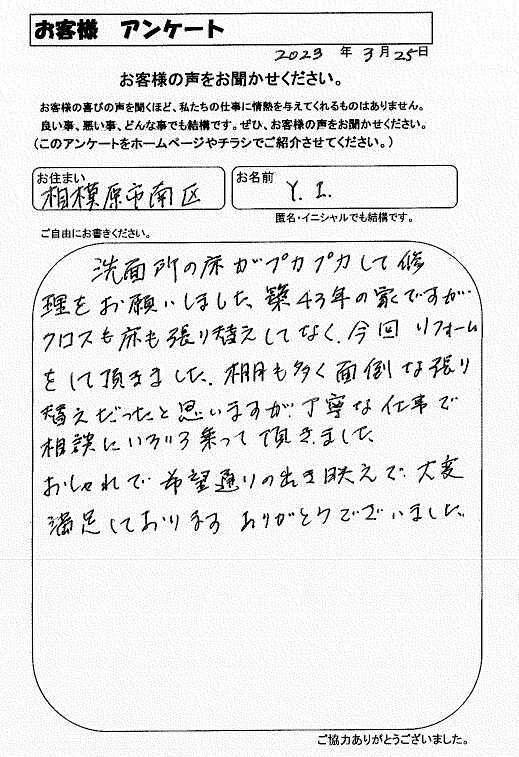 お客様 アンケート
2023 年 3月25日
お客様の声をお聞かせください。
お客様の喜びの声を聞くほど、私たちの仕事に情熱を与えてくれるものはありません。
良い事、悪い事、どんな事でも結構です。ぜひ、お客様の声をお聞かせください。
(このアンケートをホームページやチラシでご紹介させてください。)
お住まい
相模原市南区
お名前
Y. I.
匿名・イニシャルでも結構です。
ご自由にお書きください。
洗面所の床がプカプカして修
理をお願いしました。築43年の家ですが
クロスも床も張り替えしてなく、今回リフォーム
をして頂きました。棚も多く面倒な張り
替えだったと思いますが、丁寧な仕事で
相談にいろいろ乗って頂きました
おしゃれで希望通りの出き映えで、大変
満足しております ありがとうございました。
ご協力ありがとうございました。